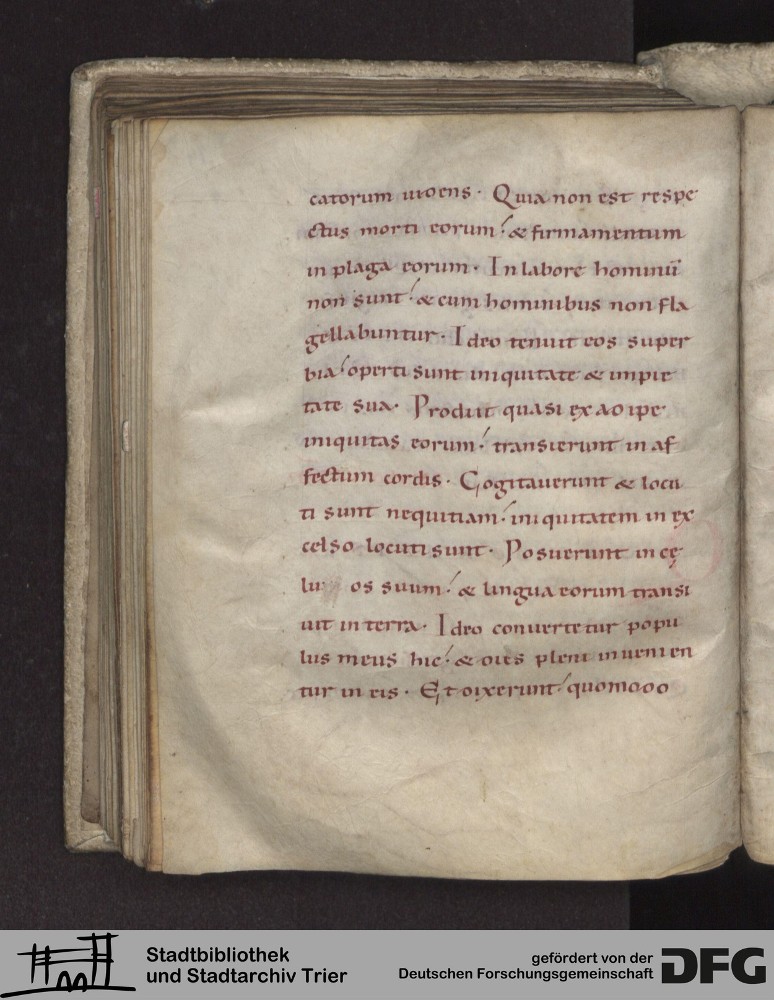 catorum uidens · Quia non est respe
ctus morti eorum & firmamentum
in plaga eorum · In labore hominū
non sunt & cum hominibus non fla
gellabuntur · Ideo tenuit eos super
bia operti sunt iniquitate & impie
tate sua · Prodiit quasi ex adipe
iniquitas eorum transierunt in af
fectum cordis · Cogitauerunt & locu
ti sunt nequitiam iniquitatem in ex
celso locuti sunt · Posuerunt in cę
lu os suum & lingua eorum transi
uit in terra · Ideo conuertetur popu
lus meus hic & dies pleni inuenien
tur in eis · Et dixerunt quomodo
Stadtbibliothek
und Stadtarchiv Trier
gefördert von der
Deutschen Forschungsgemeinschaft
DFG